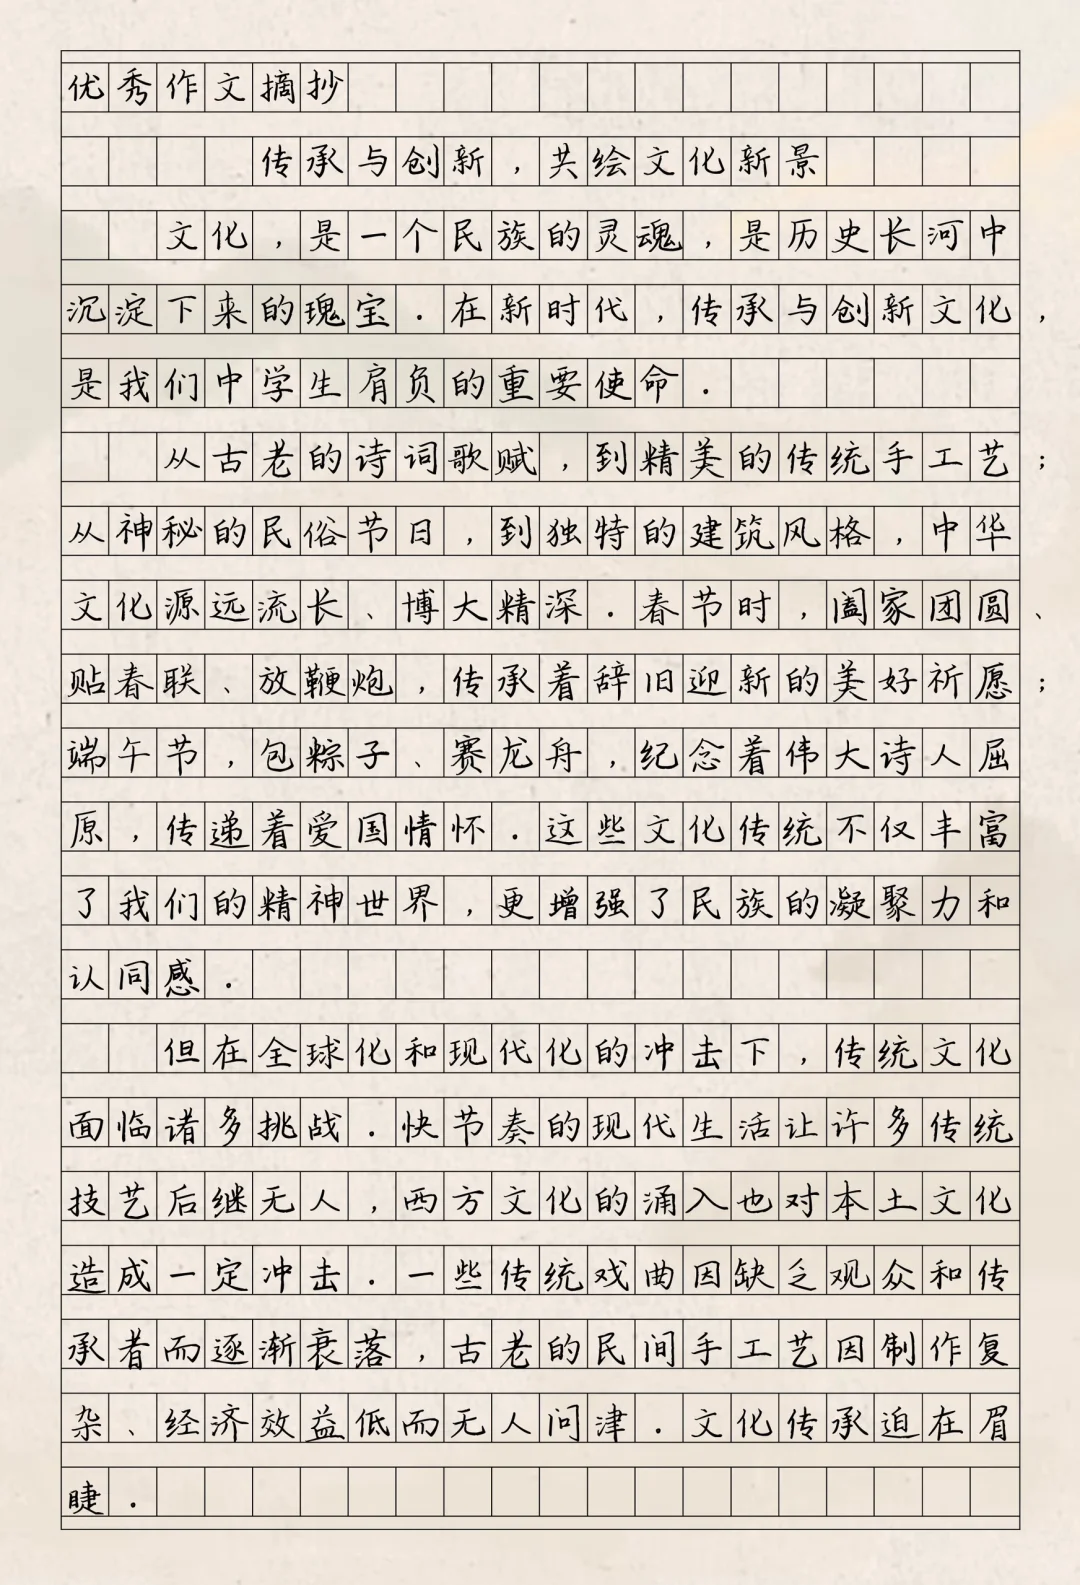 优秀作文摘抄
传承与创新，共绘文化新景
文化，是一个民族的灵魂，是历史长河中
沉淀下来的瑰宝．在新时代，传承与创新文化，
是我们中学生肩负的重要使命．
从古老的诗词歌赋，到精美的传统手工艺；
从神秘的民俗节日，到独特的建筑风格，中华
文化源远流长、博大精深．春节时，阖家团圆、
贴春联、放鞭炮，传承着辞旧迎新的美好祈愿；
端午节，包粽子、赛龙舟，纪念着伟大诗人屈
原，传递着爱国情怀．这些文化传统不仅丰富
了我们的精神世界，更增强了民族的凝聚力和
认同感．
但在全球化和现代化的冲击下，传统文化
面临诸多挑战．快节奏的现代生活让许多传统
技艺后继无人，西方文化的涌入也对本土文化
造成一定冲击．一些传统戏曲因缺乏观众和传
承者而逐渐衰落，古老的民间手工艺因制作复
杂、经济效益低而无人问津．文化传承迫在眉
睫．